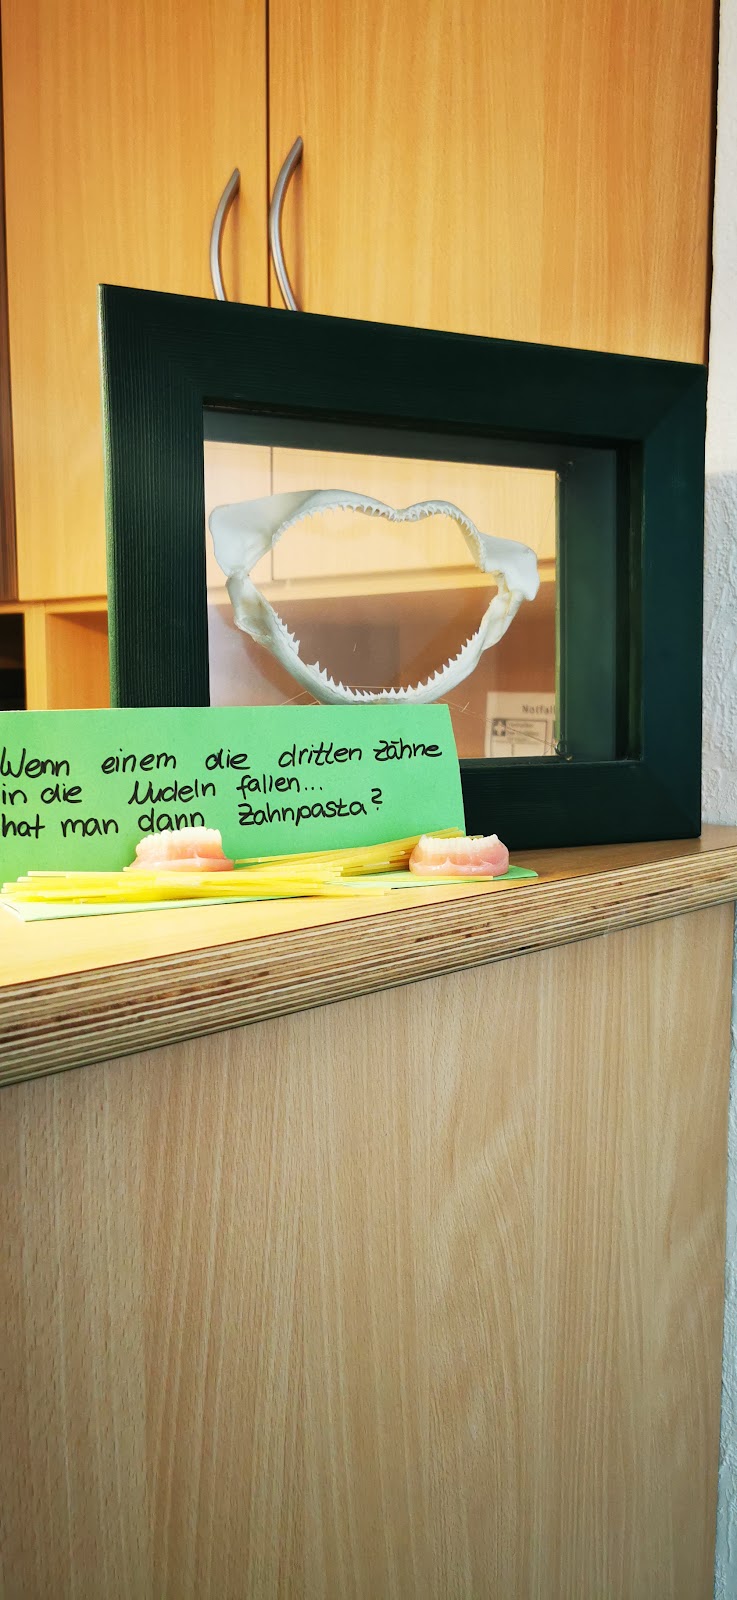 Notfall
Wenn einem die dritten Zähne
in die Nudeln fallen...
hat man dann Zahnpasta?